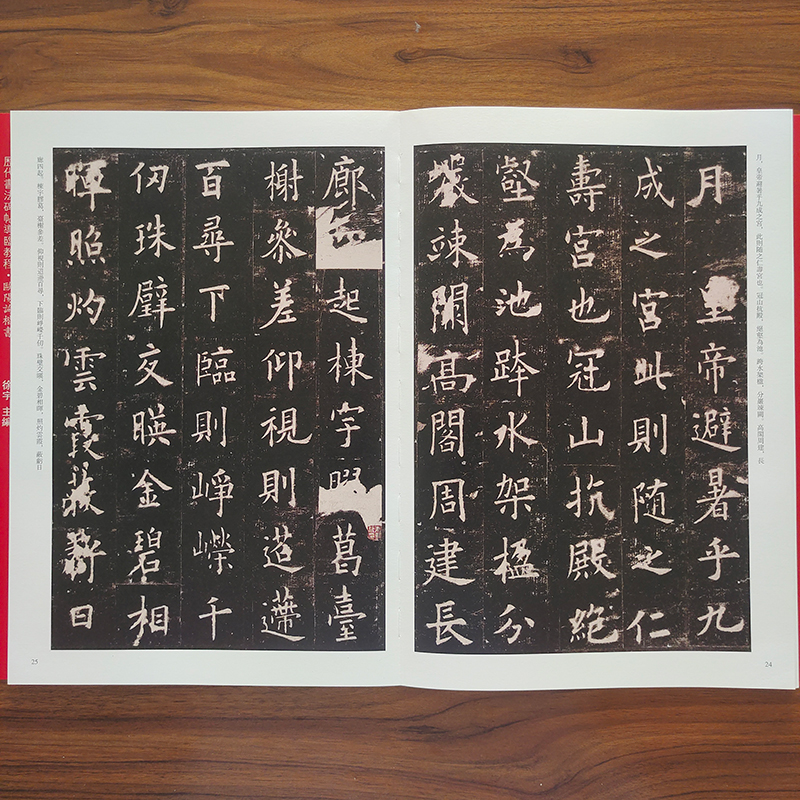 月，皇帝避暑乎九成之宮，此則隨之仁壽宮也。冠山抗殿，絕壑為池，跨水架楹，分巖竦闕，高閣周建，長
月皇帝避暑乎九
成之宮此則隨之仁
壽宮也冠山抗殿絕
壑為池跨水架楹分
巖竦闕高閣周建長
24
廊起棟宇葛臺
榭參差仰視則迢遰
百尋下臨則崢嶸千
仞珠璧交暎金碧相
暉照灼雲霞蔽虧日
廊四起，棟宇膠葛，臺榭參差。仰視則迢遰百尋，下臨則崢嶸千仞。珠璧交暎，金碧相暉，照灼雲霞，蔽虧日
25
歷代書法碑帖導臨教程·歐陽詢楷書
徐宇 主編